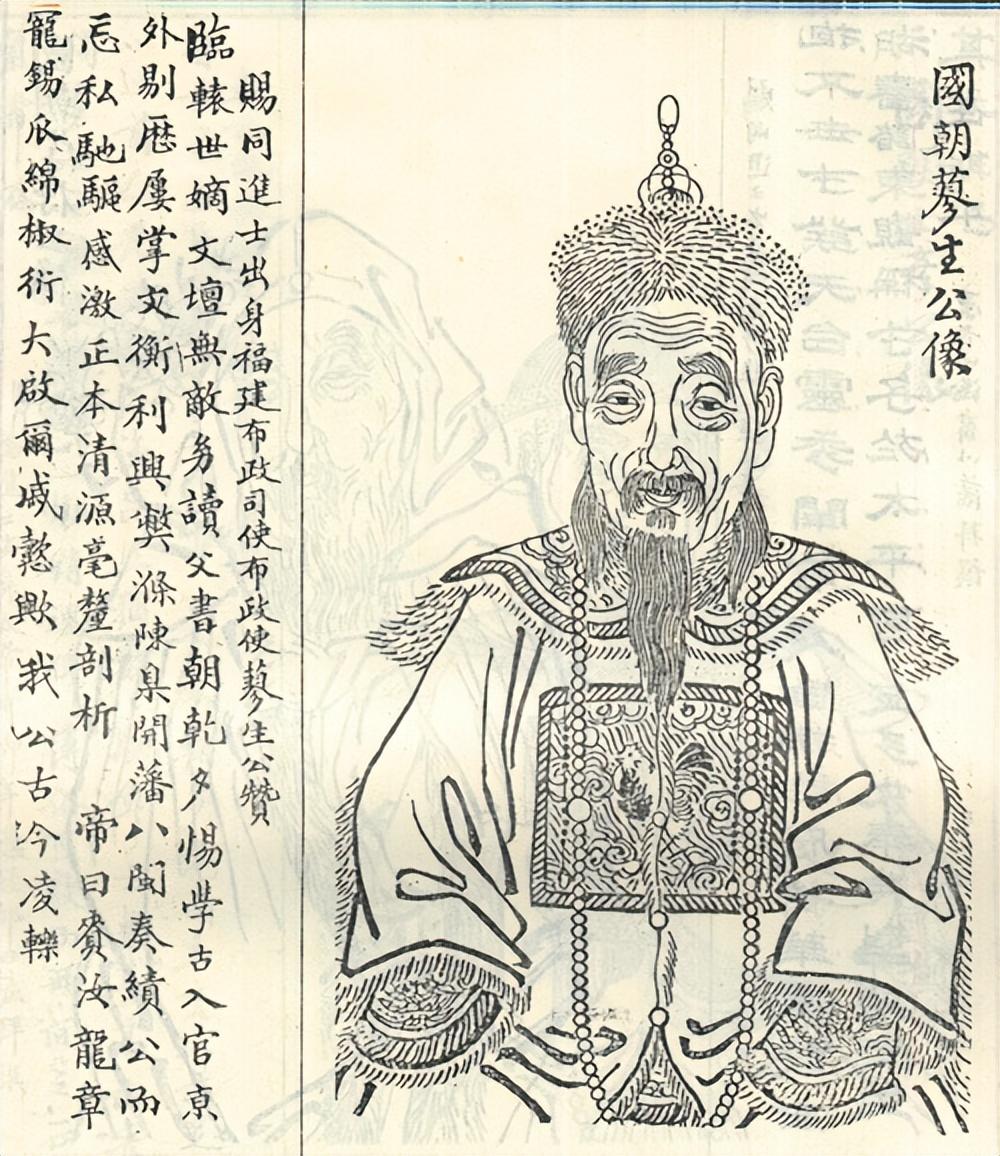 國朝蓼生公像
賜同進士出身福建布政司使布政使蓼生公贊
臨轅世嫡文壇無敵多讀父書朝乾夕惕學古入官京
外剔歷屢掌文衡利興弊滌陳臬開藩八閩奏績公而
忘私馳驅感激正本清源毫釐剖析帝曰賚汝龍章
寵錫瓜綿椒衍大啟爾戚懿歟我公古今凌轢